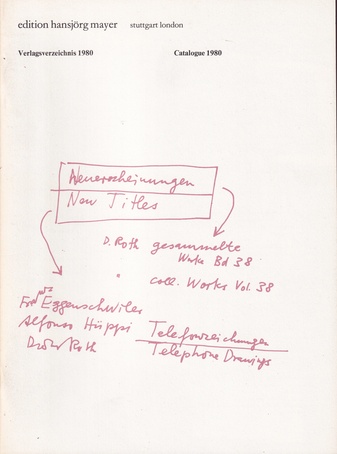 edition hansjörg mayer stuttgart london
Verlagsverzeichnis 1980 Catalogue 1980
Neuerscheinungen
New Titles
D. Roth gesammelte
Werke Bd 38
" coll. Works Vol. 38
Eggenschwiler
Alfonso Hüppi
Roth
Telefonzeichnungen
Telephone Drawings